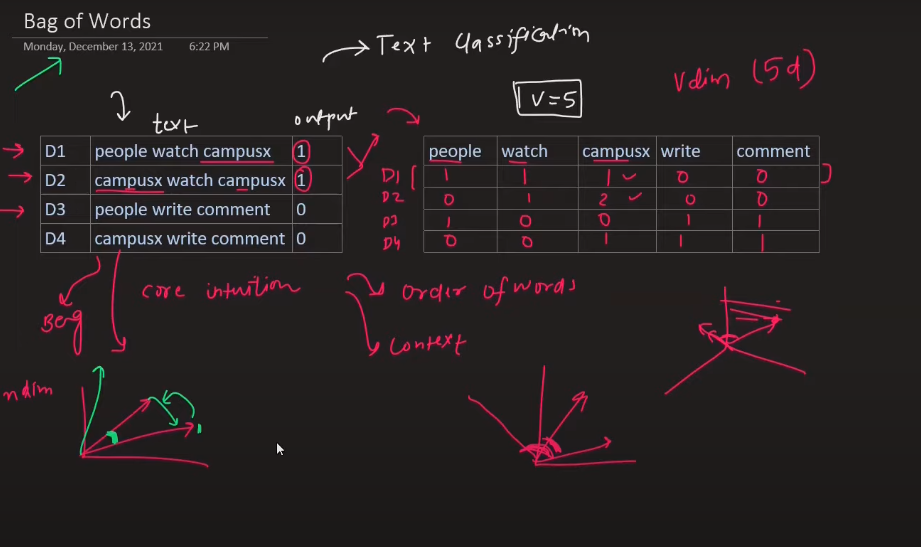 Bag of Words
Monday, December 13, 2021 6:22 PM
Text Classification
V = 5
Vdim (5d)
text output
D1 people watch campusx 1
D2 campusx watch campusx 1
D3 people write comment 0
D4 campusx write comment 0
people watch campusx write comment
D1 1 1 1 0 0
D2 0 1 2 0 0
D3 1 0 0 1 1
D4 0 0 1 1 1
core intuition
Order of words
Context
ndim